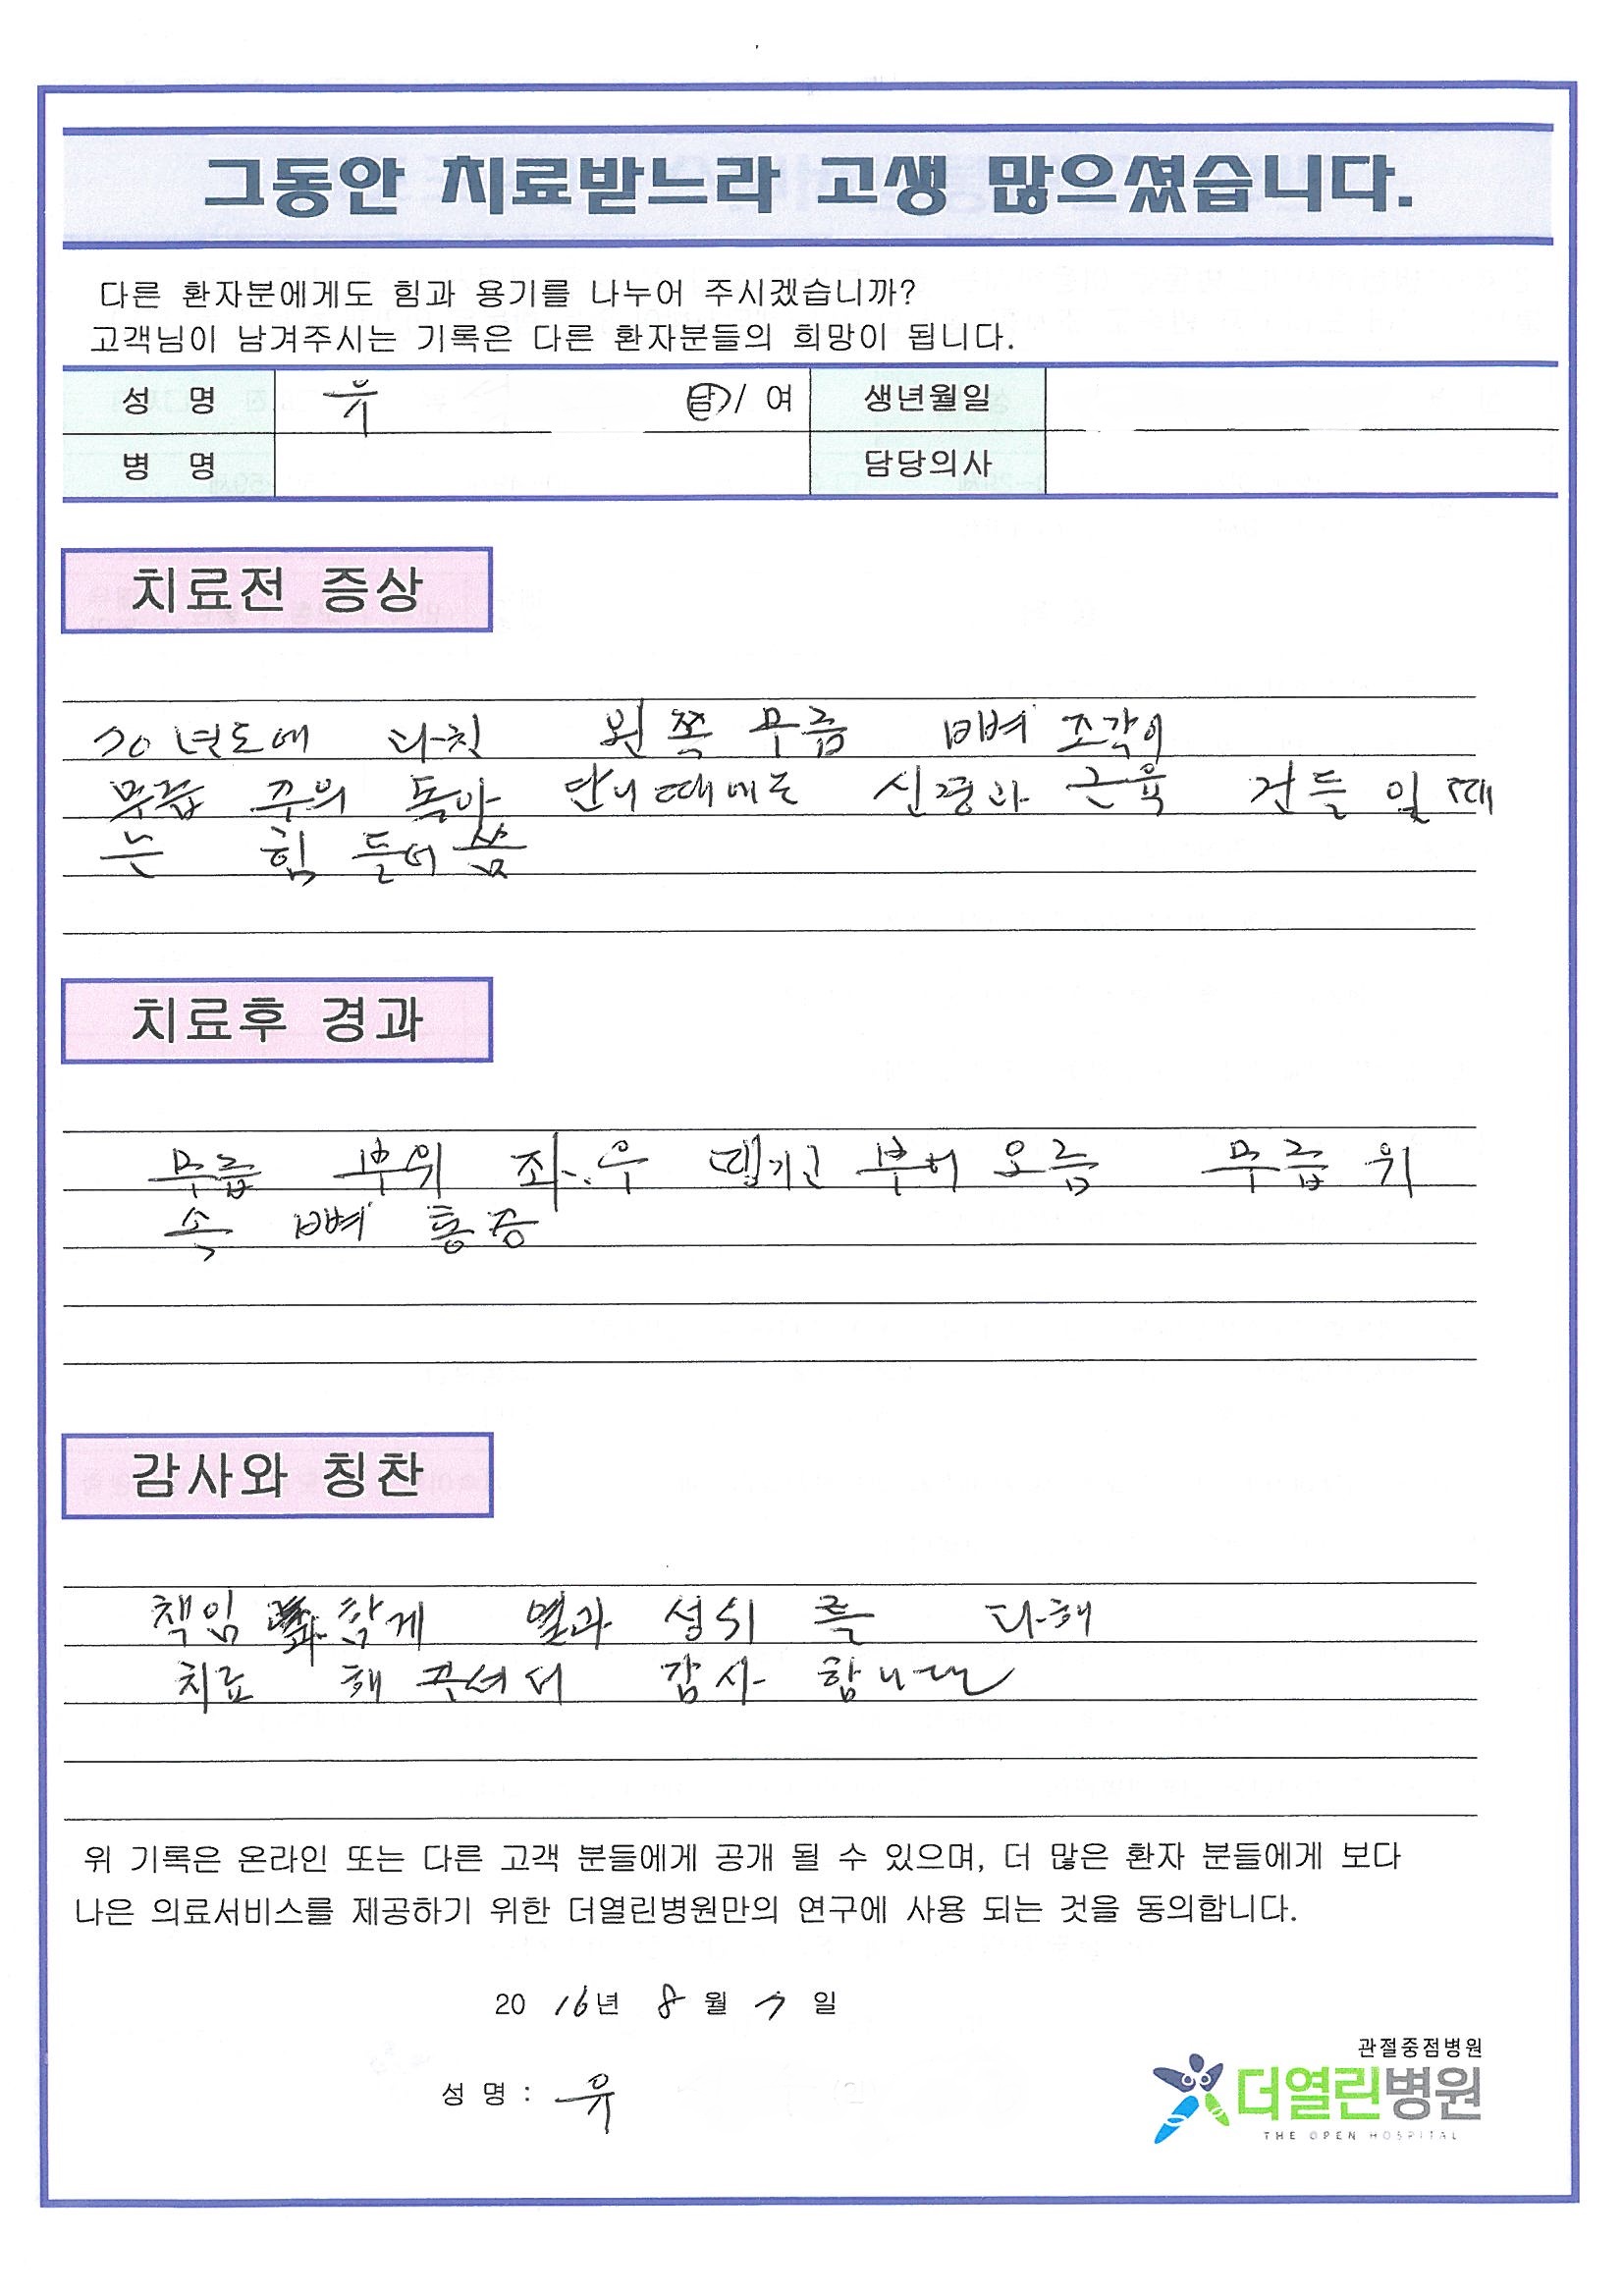 그동안 치료받느라 고생 많으셨습니다.
다른 환자분에게도 힘과 용기를 나누어 주시겠습니까?
고객님이 남겨주시는 기록은 다른 환자분들의 희망이 됩니다.
성 명 유 남 / 여 생년월일
병 명 담당의사
치료전 증상
70년도에 다친 왼쪽 무릎 뼈 조각이
무릎 주위 돌아 단니때에는 신경과 근육 건들 일 때
는 힘 들어씀
치료후 경과
무릎 부위 좌.우 땡기고 부터 오름 무릎 위
속 뼈 통증
감사와 칭찬
책임 학게 열과 성의 를 다해
치료 해 주셔서 감사 합니다
위 기록은 온라인 또는 다른 고객 분들에게 공개 될 수 있으며, 더 많은 환자 분들에게 보다
나은 의료서비스를 제공하기 위한 더열린병원만의 연구에 사용 되는 것을 동의합니다.
20 16년 8 월 7 일
성 명 : 유
관절중점병원
더열린병원
THE OPEN HOSPITAL